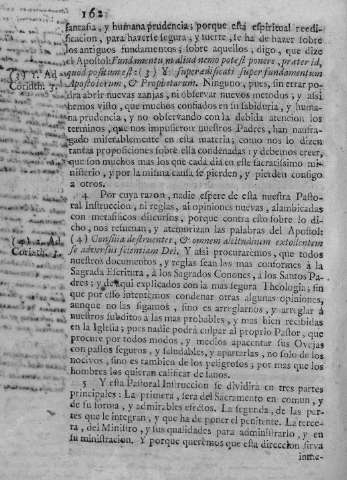 162
fantasia, y humana prudencia; porque esta espiritual reedi-
ficacion, para haverse segura, y fuerte, se ha de hazer sobre
los antiguos fundamentos; sobre aquellos, digo, que dize
el Apostol: Fundamentum aliud nemo potest ponere, præter id,
(3) 1. Ad quod positum est: (3) Y: superædificati super fundamentum
Corinth. 3. Apostolorum, & Prophetarum. Ninguno, pues, sin errar po-
drà abrir nuevas zanjas, ni observar nuevos metodos; y assi
hemos visto, que muchos confiados en su sabiduria, y huma-
na prudencia, y no observando con la debida atencion los
terminos, que nos impusieron nuestros Padres, han naufra-
gado miserablemente en esta materia; como nos lo dizen
tantas proposiciones sobre ella condenadas; y debemos creer,
que son muchos mas los que cada dia en este sacratissimo mi-
nisterio, y por la misma causa se pierden, y pierden consigo
a otros.
4 Por cuya razon, nadie espere de esta nuestra Pasto-
ral Instruccion, ni reglas, ni opiniones nuevas, alambicadas
con metafisicos discursos, porque contra esto sobre lo di-
cho, nos resuenan, y atemorizan las palabras del Apostol:
(4) 2. Ad (4) Consilia destruentes, & omnem altitudinem extollentem
Corinth. se adversus scientiam Dei. Y assi procuraremos, que todos
nuestros documentos, y reglas sean las mas conformes à la
Sagrada Escritura, à los Sagrados Canones, à los Santos Pa-
dres; y de aqui explicados con la mas segura Theologia; sin
que por esto intentemos condenar otras algunas opiniones,
aunque no las sigamos, sino es arreglarnos, y arreglar à
nuestros subditos à las mas probables, y mas bien recibidas
en la Iglesia; pues nadie podrà culpar al proprio Pastor, que
procure por todos modos, y medios apacentar sus Ovejas
con pastos seguros, y saludables, y apartarlas, no solo de los
nocivos, sino es tambien de los peligrosos; por mas que los
hombres los quieran calificar de sanos.
5 Y esta Pastoral Instruccion se dividirà en tres partes
principales: La primera, serà del Sacramento en comun, y
de su forma, y admirables efectos. La segunda, de las par-
tes que le integran, y que ha de poner el penitente. La terce-
ra, del Ministro, y sus qualidades para administrarlo, y en
su ministracion. Y porque queremos que esta direccion sirva
inme-